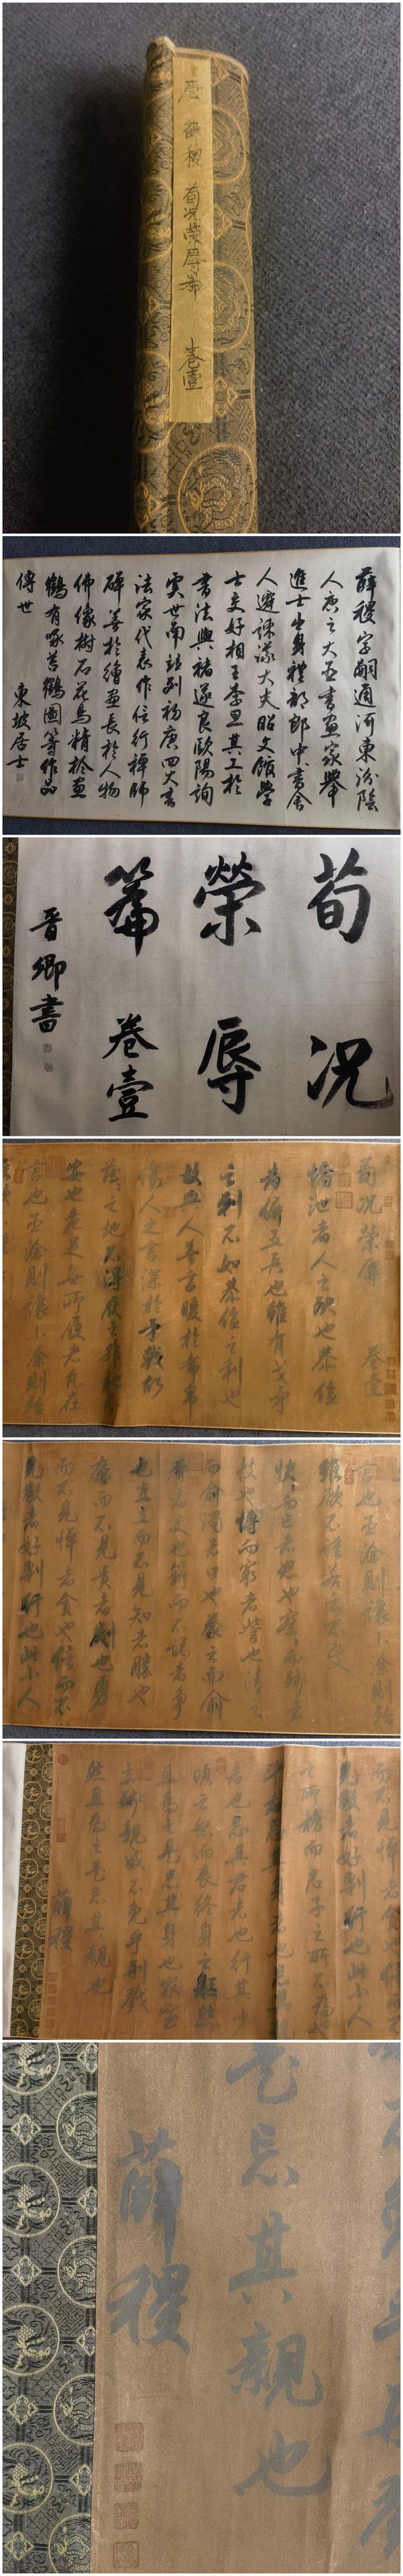 唐 薛稷 荀况榮辱篇 卷壹
薛稷字嗣通河東汾陰
人唐之大臣書畫家舉
進士出身禮部郎中書舍
人遷諫議大夫昭文館學
士交好相王李旦其工於
書法與褚遂良歐陽詢
虞世南并列初唐四大書
法家代表作信行禪師
碑善於繪畫長於人物
佛像樹石花鳥精於畫
鶴有啄苔鶴圖等作品
傳世
東坡居士
荀况
榮辱
篇 卷壹
晋卿書
荀况榮辱 卷壹
憍泄者人之殃也恭儉
者偋五兵也雖有戈矛
之刺不如恭儉之利也
故與人善言暖於布帛
傷人之言深於矛戟故
薄薄之地不得履之非地不
安也危足無所履者凡在
言也巨涂則讓小涂則殆
言也巨涂則讓小涂則殆
雖欲不謹若云不使
快快而亡者怒也察察而殘者
忮也博而窮者訾也清之
而俞濁者口也豢之而俞
瘠者交也辯而不說者爭
也直立而不見知者勝也
廉而不見貴者劌也勇
而不見憚者貪也信而不
見敬者好剸行也此小人
而不見憚者貪也信而不
見敬者好剸行也此小人
之所務而君子之所不為也
鬥者忘其身者也忘其親
者也忘其君者也行其少
頃之怒而喪終身之軀然
且為之是忘其身也家室
立殘親戚不免乎刑戮
然且為之是忘其親也
薛稷
是忘其親也
薛稷